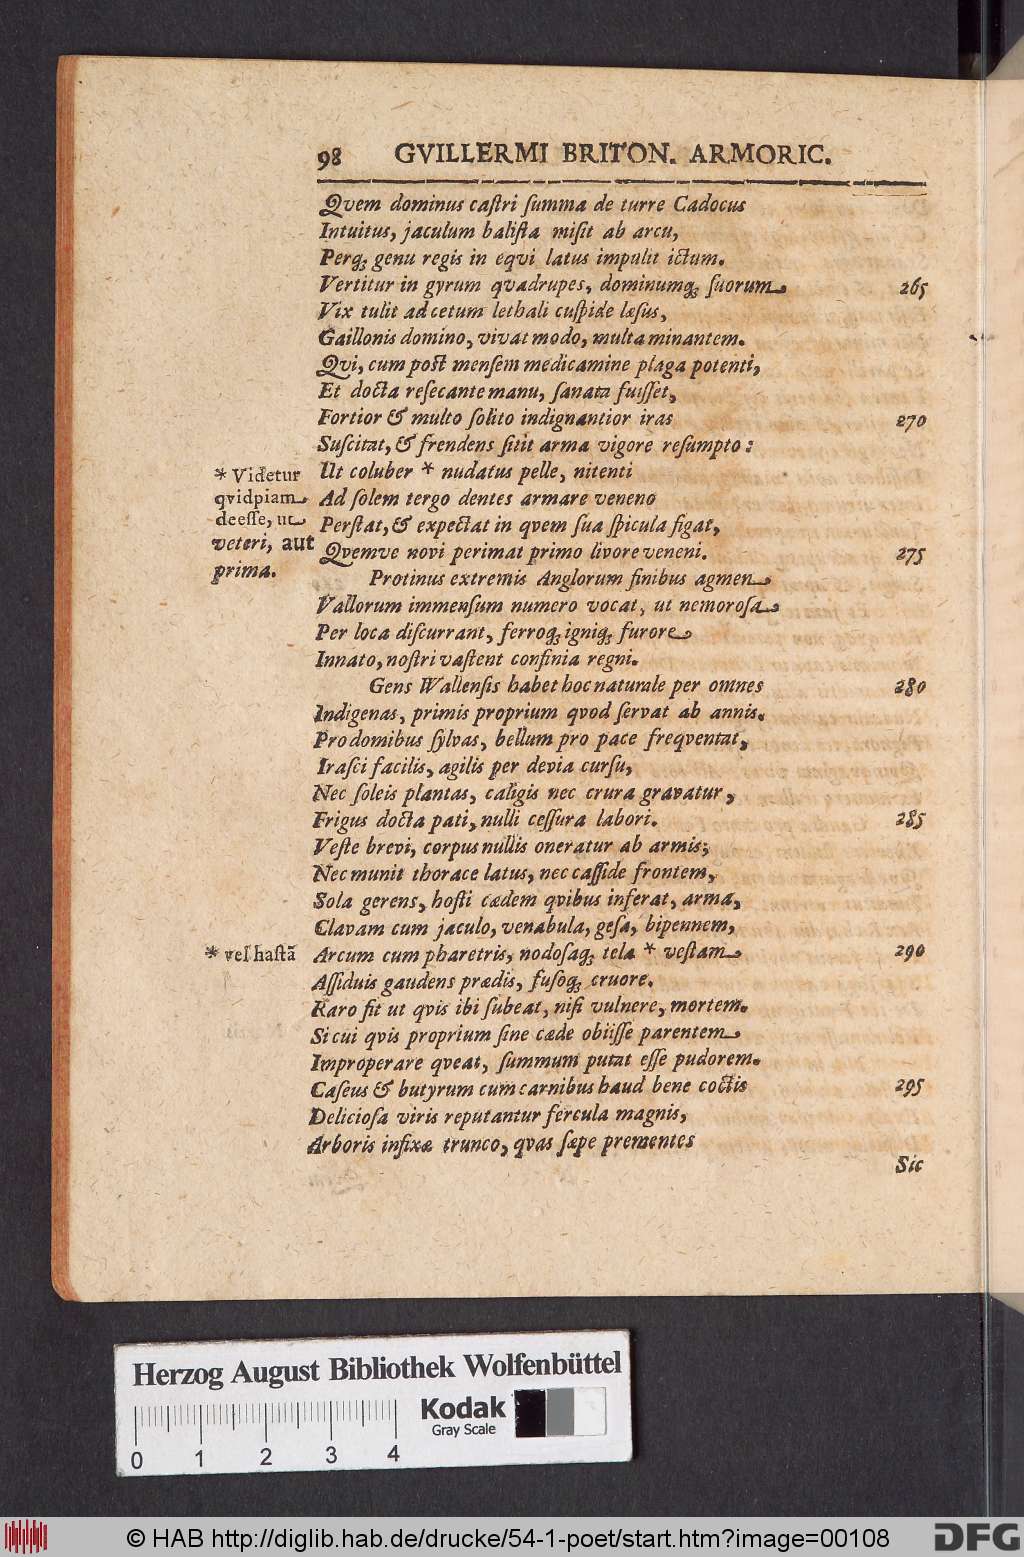 98 GVILLERMI BRITON. ARMORIC.
Qvem dominus caſtri ſumma de turre Cadocus
Intuitus, jaculum baliſta miſit ab arcu,
Perq; genu regis in eqvi latus impulit ictum.
Vertitur in gyrum qvadrupes, dominumq; ſuorum 265
Vix tulit ad cetum lethali cuſpide læſus,
Gaillonis domino, vivat modo, multa minantem.
Qvi, cum poſt menſem medicamine plaga potenti,
Et docta reſecante manu, ſanata fuiſſet,
Fortior & multo ſolito indignantior iras 270
Suſcitat, & frendens ſitit arma vigore reſumpto:
Ut coluber * nudatus pelle, nitenti
* Videtur
qvidpiam
deeſſe, ut
veteri, aut
prima.
Ad ſolem tergo dentes armare veneno
Perſtat, & expectat in qvem ſua ſpicula figat,
Qvemve novi perimat primo livore veneni. 275
Protinus extremis Anglorum finibus agmen
Vallorum immenſum numero vocat, ut nemoroſa
Per loca diſcurrant, ferroq; igniq; furore
Innato, noſtri vaſtent confinia regni.
Gens Wallenſis habet hoc naturale per omnes 280
Indigenas, primis proprium qvod ſervat ab annis.
Pro domibus ſylvas, bellum pro pace freqventat,
Iraſci facilis, agilis per devia curſu,
Nec ſoleis plantas, caligis nec crura gravatur,
Frigus docta pati, nulli ceſſura labori. 285
Veſte brevi, corpus nullis oneratur ab armis;
Nec munit thorace latus, nec caſſide frontem,
Sola gerens, hoſti cædem qvibus inferat, arma,
Clavam cum jaculo, venabula, geſa, bipennem,
* vel haſtã Arcum cum pharetris, nodoſaq; tela * veſtam 290
Aſſiduis gaudens prædis, fuſoq; cruore.
Raro fit ut qvis ibi ſubeat, niſi vulnere, mortem.
Si cui qvis proprium ſine cæde obiiſſe parentem
Improperare qveat, ſummum putat eſſe pudorem.
Caſeus & butyrum cum carnibus haud bene coctis 295
Delicioſa viris reputantur fercula magnis,
Arboris infixæ trunco, qvas ſæpe prementes
Sic
Herzog August Bibliothek Wolfenbüttel
Kodak
Gray Scale
0 1 2 3 4
© HAB http://diglib.hab.de/drucke/54-1-poet/start.htm?image=00108
DFG